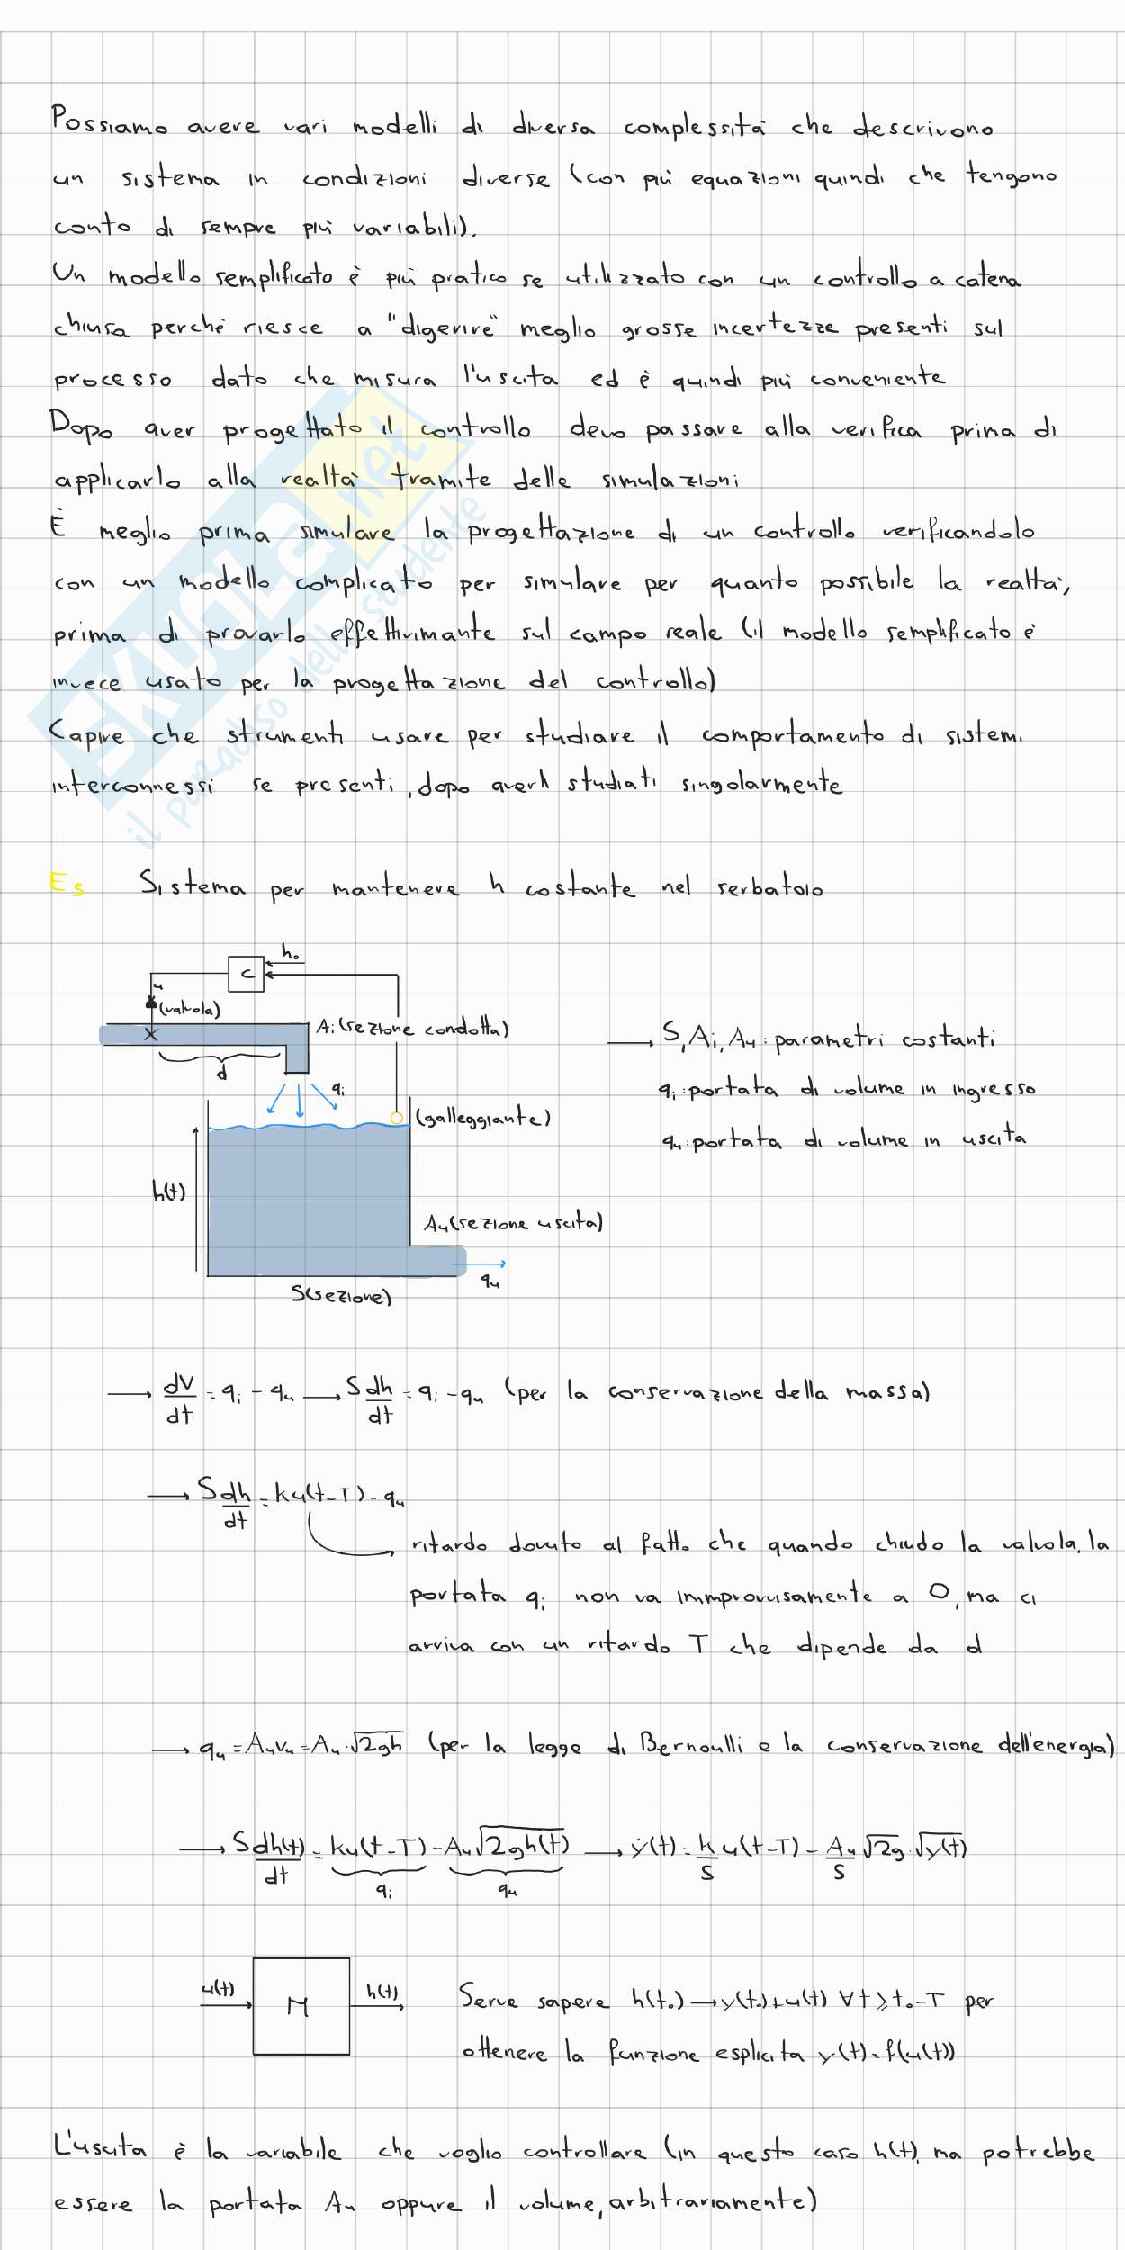 Possiamo avere vari modelli di diversa complessità che descrivono
un sistema in condizioni diverse (con più equazioni quindi che tengono
conto di sempre più variabili).
Un modello semplificato è più pratico se utilizzato con un controllo a catena
chiusa perché riesce a "digerire" meglio grosse incertezze presenti sul
processo dato che misura l'uscita ed è quindi più conveniente
Dopo aver progettato il controllo devo passare alla verifica prima di
applicarlo alla realtà tramite delle simulazioni
È meglio prima simulare la progettazione di un controllo verificandolo
con un modello complicato per simulare per quanto possibile la realtà,
prima di provarlo effettivimante sul campo reale (il modello semplificato è
invece usato per la progettazione del controllo)
Capire che strumenti usare per studiare il comportamento di sistemi
interconnessi se presenti, dopo averli studiati singolarmente
SKUOLA.net
il paradiso dello studente
Es Sistema per mantenere h costante nel serbatoio
h₀
C
u
(valvola)
Aᵢ (sezione condotta)
d
qᵢ
(galleggiante)
h(t)
Aᵤ (sezione uscita)
qᵤ
S(sezione)
→ S, Aᵢ, Aᵤ: parametri costanti
qᵢ: portata di volume in ingresso
qᵤ: portata di volume in uscita
→ dV/dt = qᵢ - qᵤ → S dh/dt = qᵢ - qᵤ (per la conservazione della massa)
→ S dh/dt = ku(t-T) - qᵤ
ritardo dovuto al fatto che quando chiudo la valvola, la
portata qᵢ non va immprovvisamente a 0, ma ci
arriva con un ritardo T che dipende da d
→ qᵤ = Aᵤvᵤ = Aᵤ·√2gh (per la legge di Bernoulli e la conservazione dell'energia)
→ S dh(t)/dt = ku(t-T) - Aᵤ√2gh(t) → ẏ(t) = k/S u(t-T) - Aᵤ/S √2g·√y(t)
qᵢ qᵤ
u(t) M h(t)
Serve sapere h(t₀) → y(t₀) + u(t) ∀t ≥ t₀-T per
ottenere la funzione esplicita y(t) = f(u(t))
L'uscita è la variabile che voglio controllare (in questo caso h(t), ma potrebbe
essere la portata Aᵤ oppure il volume, arbitrariamente)